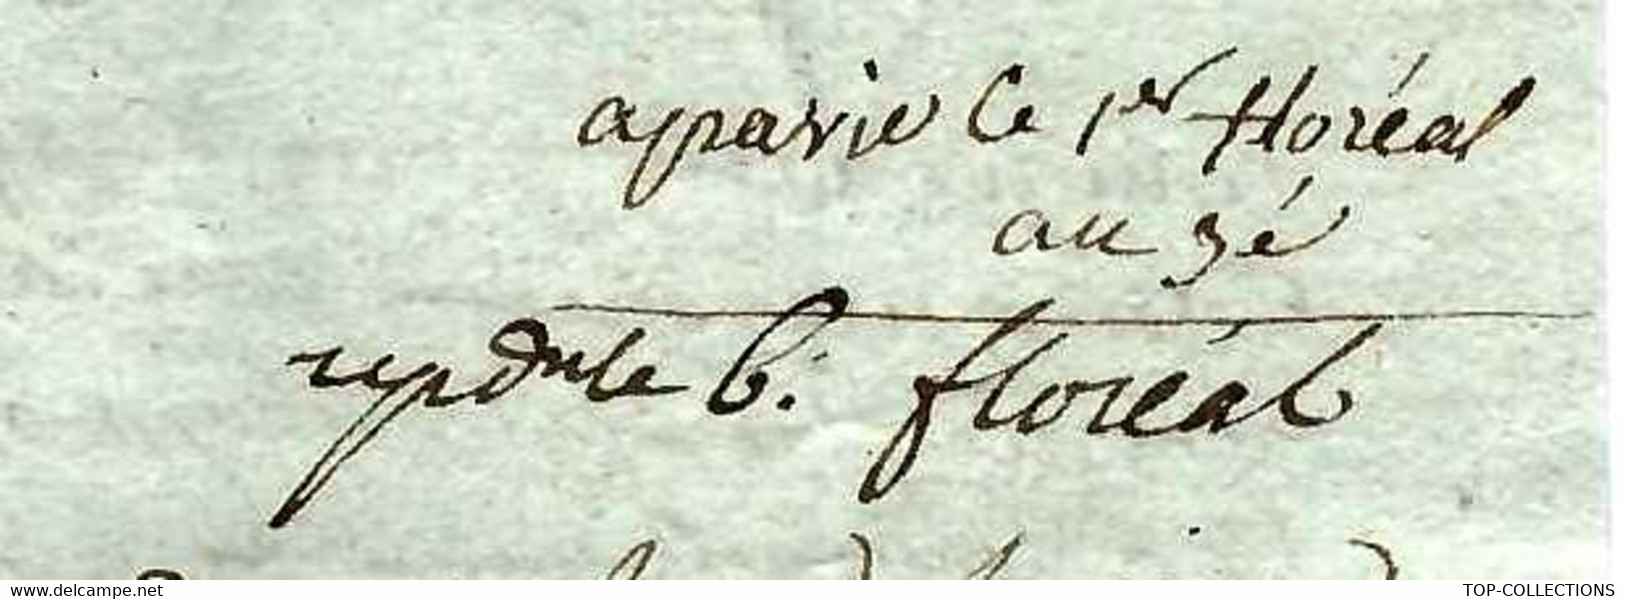 a paris le 1er floréal
au 3é
repdu le 6. floréal
www.delcampe.net
TOP-COLLECTIONS